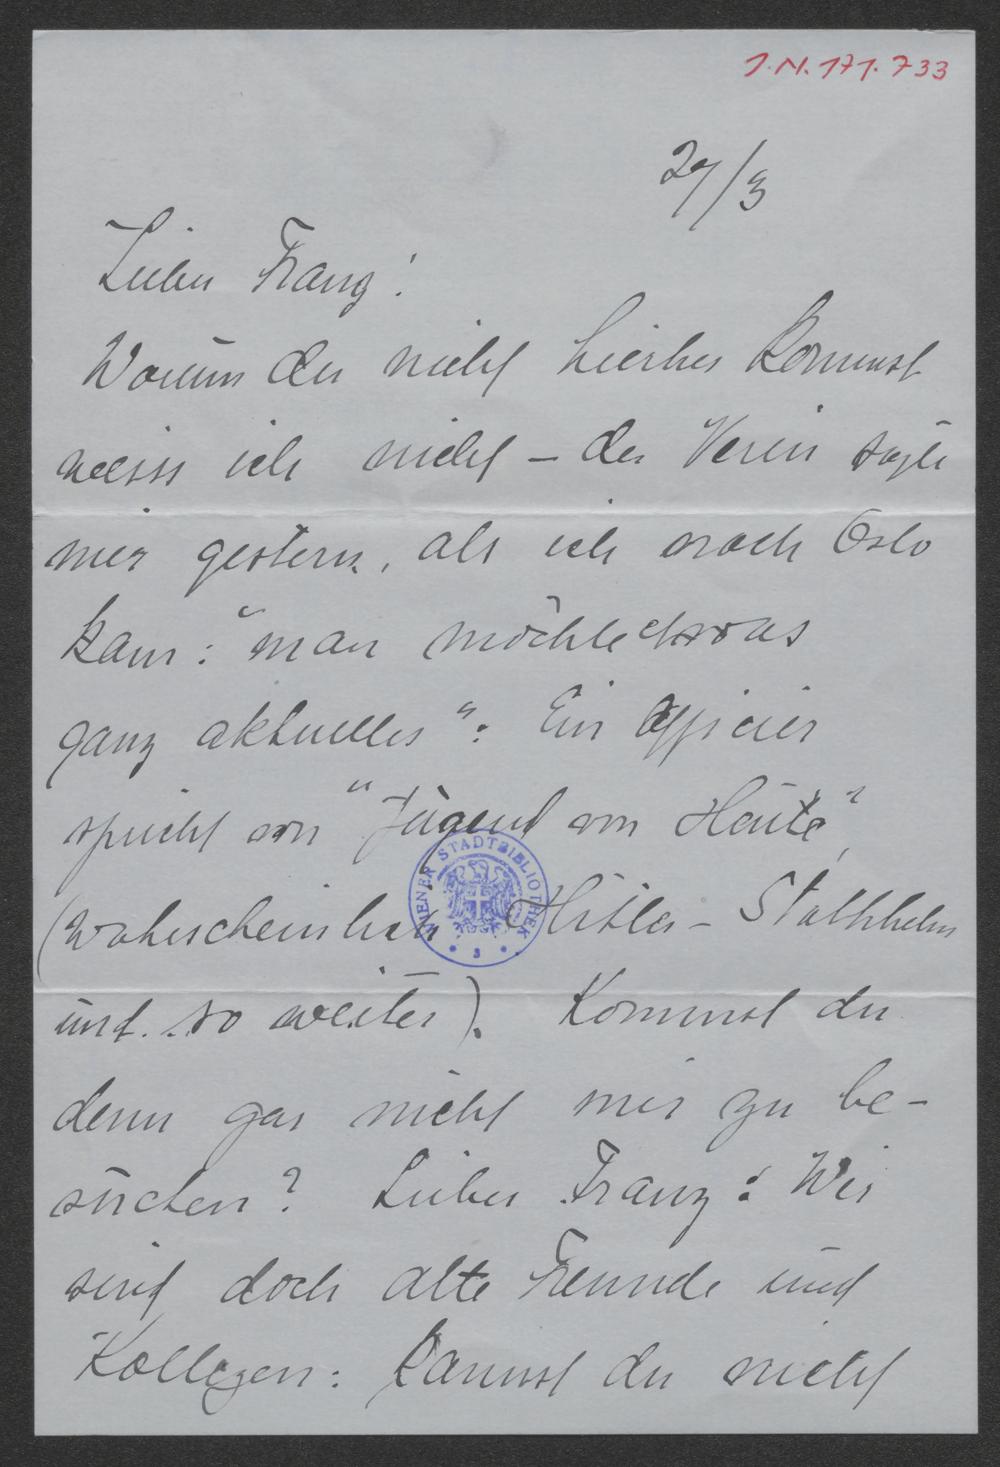 I.N. 171.733
27/3
Lieber Franz!
Warum du nicht hierher kommst
weiss ich nicht – der Verein sagte
mir gestern, als ich nach Oslo
kam: "man möchte etwas
ganz aktuelles": Ein Officier
spricht von "Jugend von Heute",
WIENER STADTBIBLIOTHEK
(wahrscheinlich Hitler – Stahlhelm
3
und so weiter). Kommst du
denn gar nicht mir zu be-
suchen? Lieber Franz: Wir
sind doch alte Freunde und
Kollegen: kannst du nicht